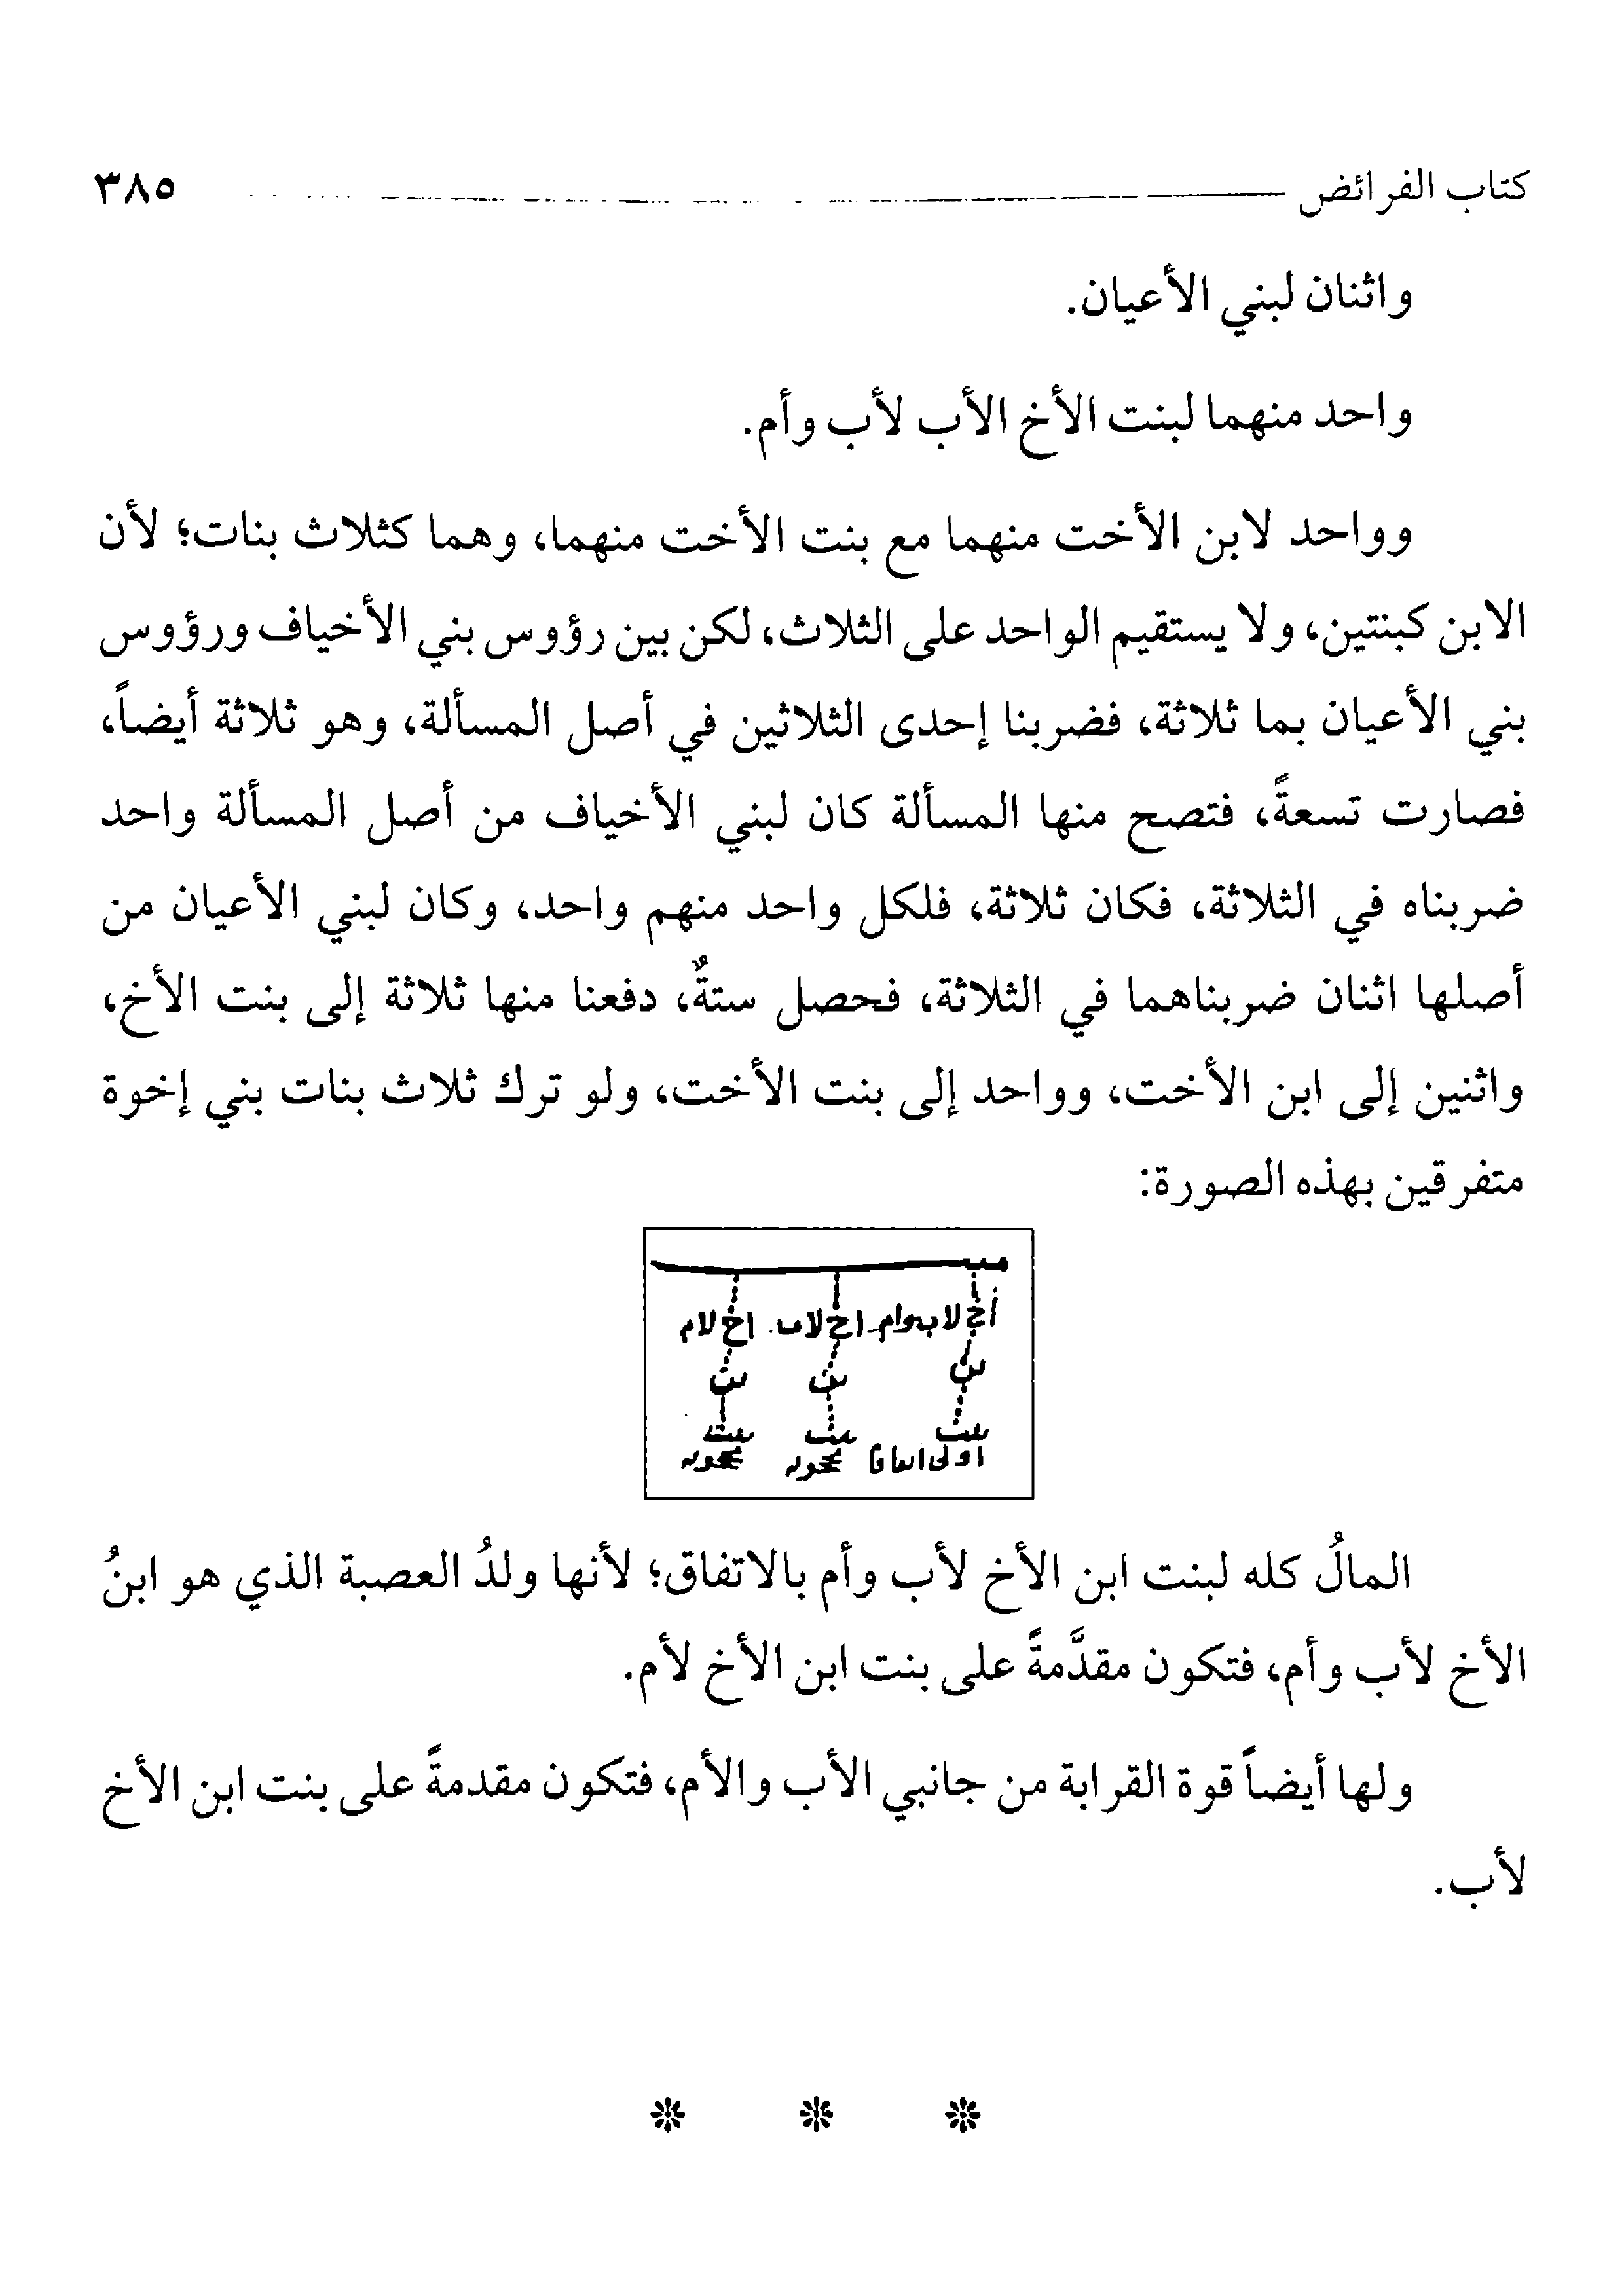 كتاب الفرائض ٣٨٥
واثنان لبني الأعيان.
واحد منهما لبنت الأخ الأب لأب وأم.
وواحد لابن الأخت منهما مع بنت الأخت منهما، وهما كثلاث بنات؛ لأن
الابن كبنتين، ولا يستقيم الواحد على الثلاث، لكن بين رؤوس بني الأخياف ورؤوس
بني الأعيان بما ثلاثة، فضربنا إحدى الثلاثين في أصل المسألة، وهو ثلاثة أيضاً،
فصارت تسعةً، فتصح منها المسألة كان لبني الأخياف من أصل المسألة واحد
ضربناه في الثلاثة، فكان ثلاثة، فلكل واحد منهم واحد، وكان لبني الأعيان من
أصلها اثنان ضربناهما في الثلاثة، فحصل ستةٌ، دفعنا منها ثلاثة إلى بنت الأخ،
واثنين إلى ابن الأخت، وواحد إلى بنت الأخت، ولو ترك ثلاث بنات بني إخوة
متفرقين بهذه الصورة:
أخ لاب وام اخ لاب اخ لام
بن بن بن
بنت بنت بنت
المالُ كله لبنت ابن الأخ لأب وأم بالاتفاق؛ لأنها ولدُ العصبة الذي هو ابنُ
الأخ لأب وأم، فتكون مقدَّمةً على بنت ابن الأخ لأم.
ولها أيضاً قوة القرابة من جانبي الأب والأم، فتكون مقدمةً على بنت ابن الأخ
لأب.